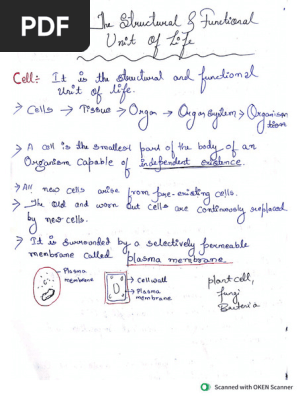 PDF
The Structural & Functional
Unit of Life
Cell: It is the structural and functional
Unit of life.
> Cells → Tissue → Organ → Organ System → Organism
> A cell is the smallest part of the body of an
Organism capable of independent existence.
> All new cells arise from pre-existing cells.
> The old and worn out cells are continuously replaced
by new cells.
> It is surrounded by a selectively permeable
membrane called plasma membrane.
Plasma
membrane
Cell wall
Plasma
membrane
plant cell,
fungi
Bacteria
Scanned with OKEN Scanner